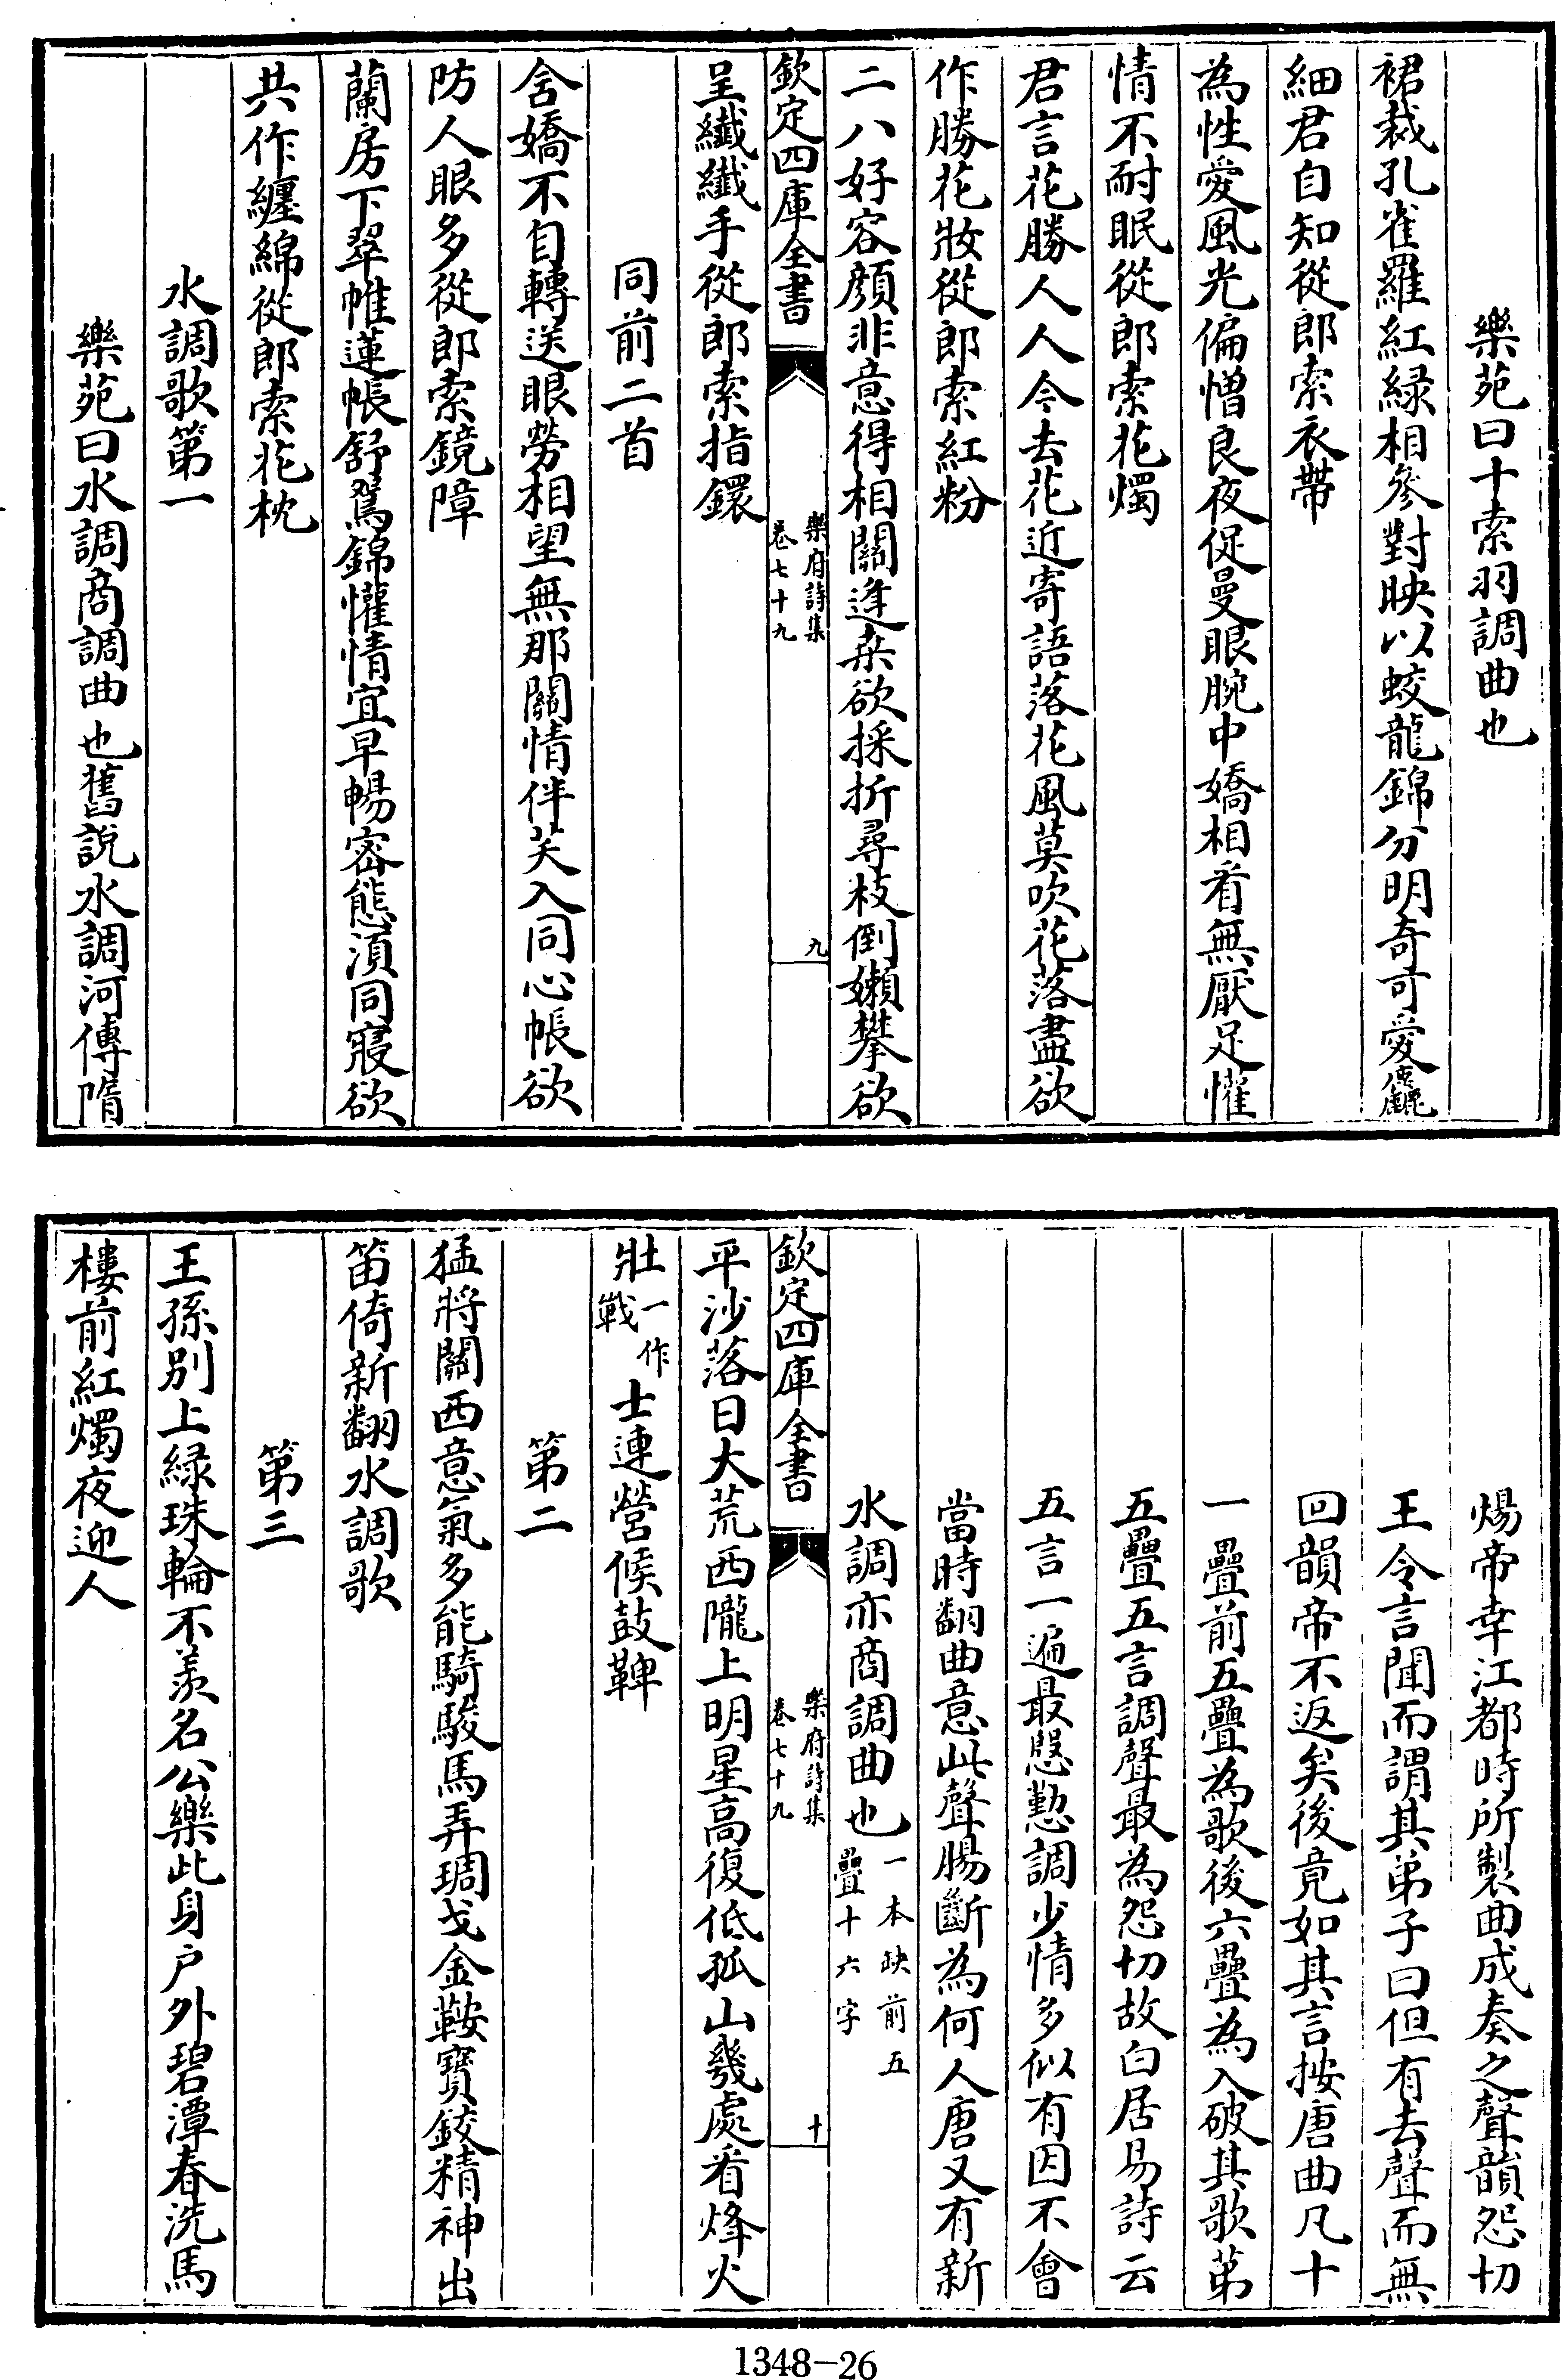 樂苑曰十索羽調曲也
裙裁孔雀羅紅緑相參對映以蛟龍錦分明奇可愛麤
細君自知從郎索衣帶
為性愛風光偏憎良夜促曼眼腕中嬌相看無厭足懽
情不耐眠從郎索花燭
君言花勝人人今去花近寄語落花風莫吹花落盡欲
作勝花妝從郎索紅粉
二八好容顔非意得相關逢桒欲採折尋枝倒嬾攀欲
欽定四庫全書
樂府詩集
卷七十九
九
呈纖纖手從郎索指鐶
同前二首
含嬌不自轉送眼勞相望無那關情伴共入同心帳欲
防人眼多從郎索鏡障
蘭房下翠帷蓮帳舒鴛錦懽情宜早暢密態湏同寢欲
共作纏綿從郎索花枕
水調歌第一
樂苑曰水調商調曲也舊說水調河傳隋
煬帝幸江都時所製曲成奏之聲韻怨切
王令言聞而謂其弟子曰但有去聲而無
回韻帝不返矣後竟如其言按唐曲凡十
一疊前五疊為歌後六疊為入破其歌第
五疊五言調聲最為怨切故白居易詩云
五言一遍最慇懃調少情多似有因不會
當時翻曲意此聲腸斷為何人唐又有新
水調亦商調曲也一本缺前五
疊十六字
欽定四庫全書
樂府詩集
卷七十九
十
平沙落日大荒西隴上明星高復低孤山幾處看烽火
壯一作
戰士連營候鼓鞞
第二
猛將關西意氣多能騎駿馬弄琱戈金鞍寶鉸精神出
笛倚新翻水調歌
第三
王孫別上緑珠輪不羨名公樂此身户外碧潭春洗馬
樓前紅燭夜迎人
1348-26